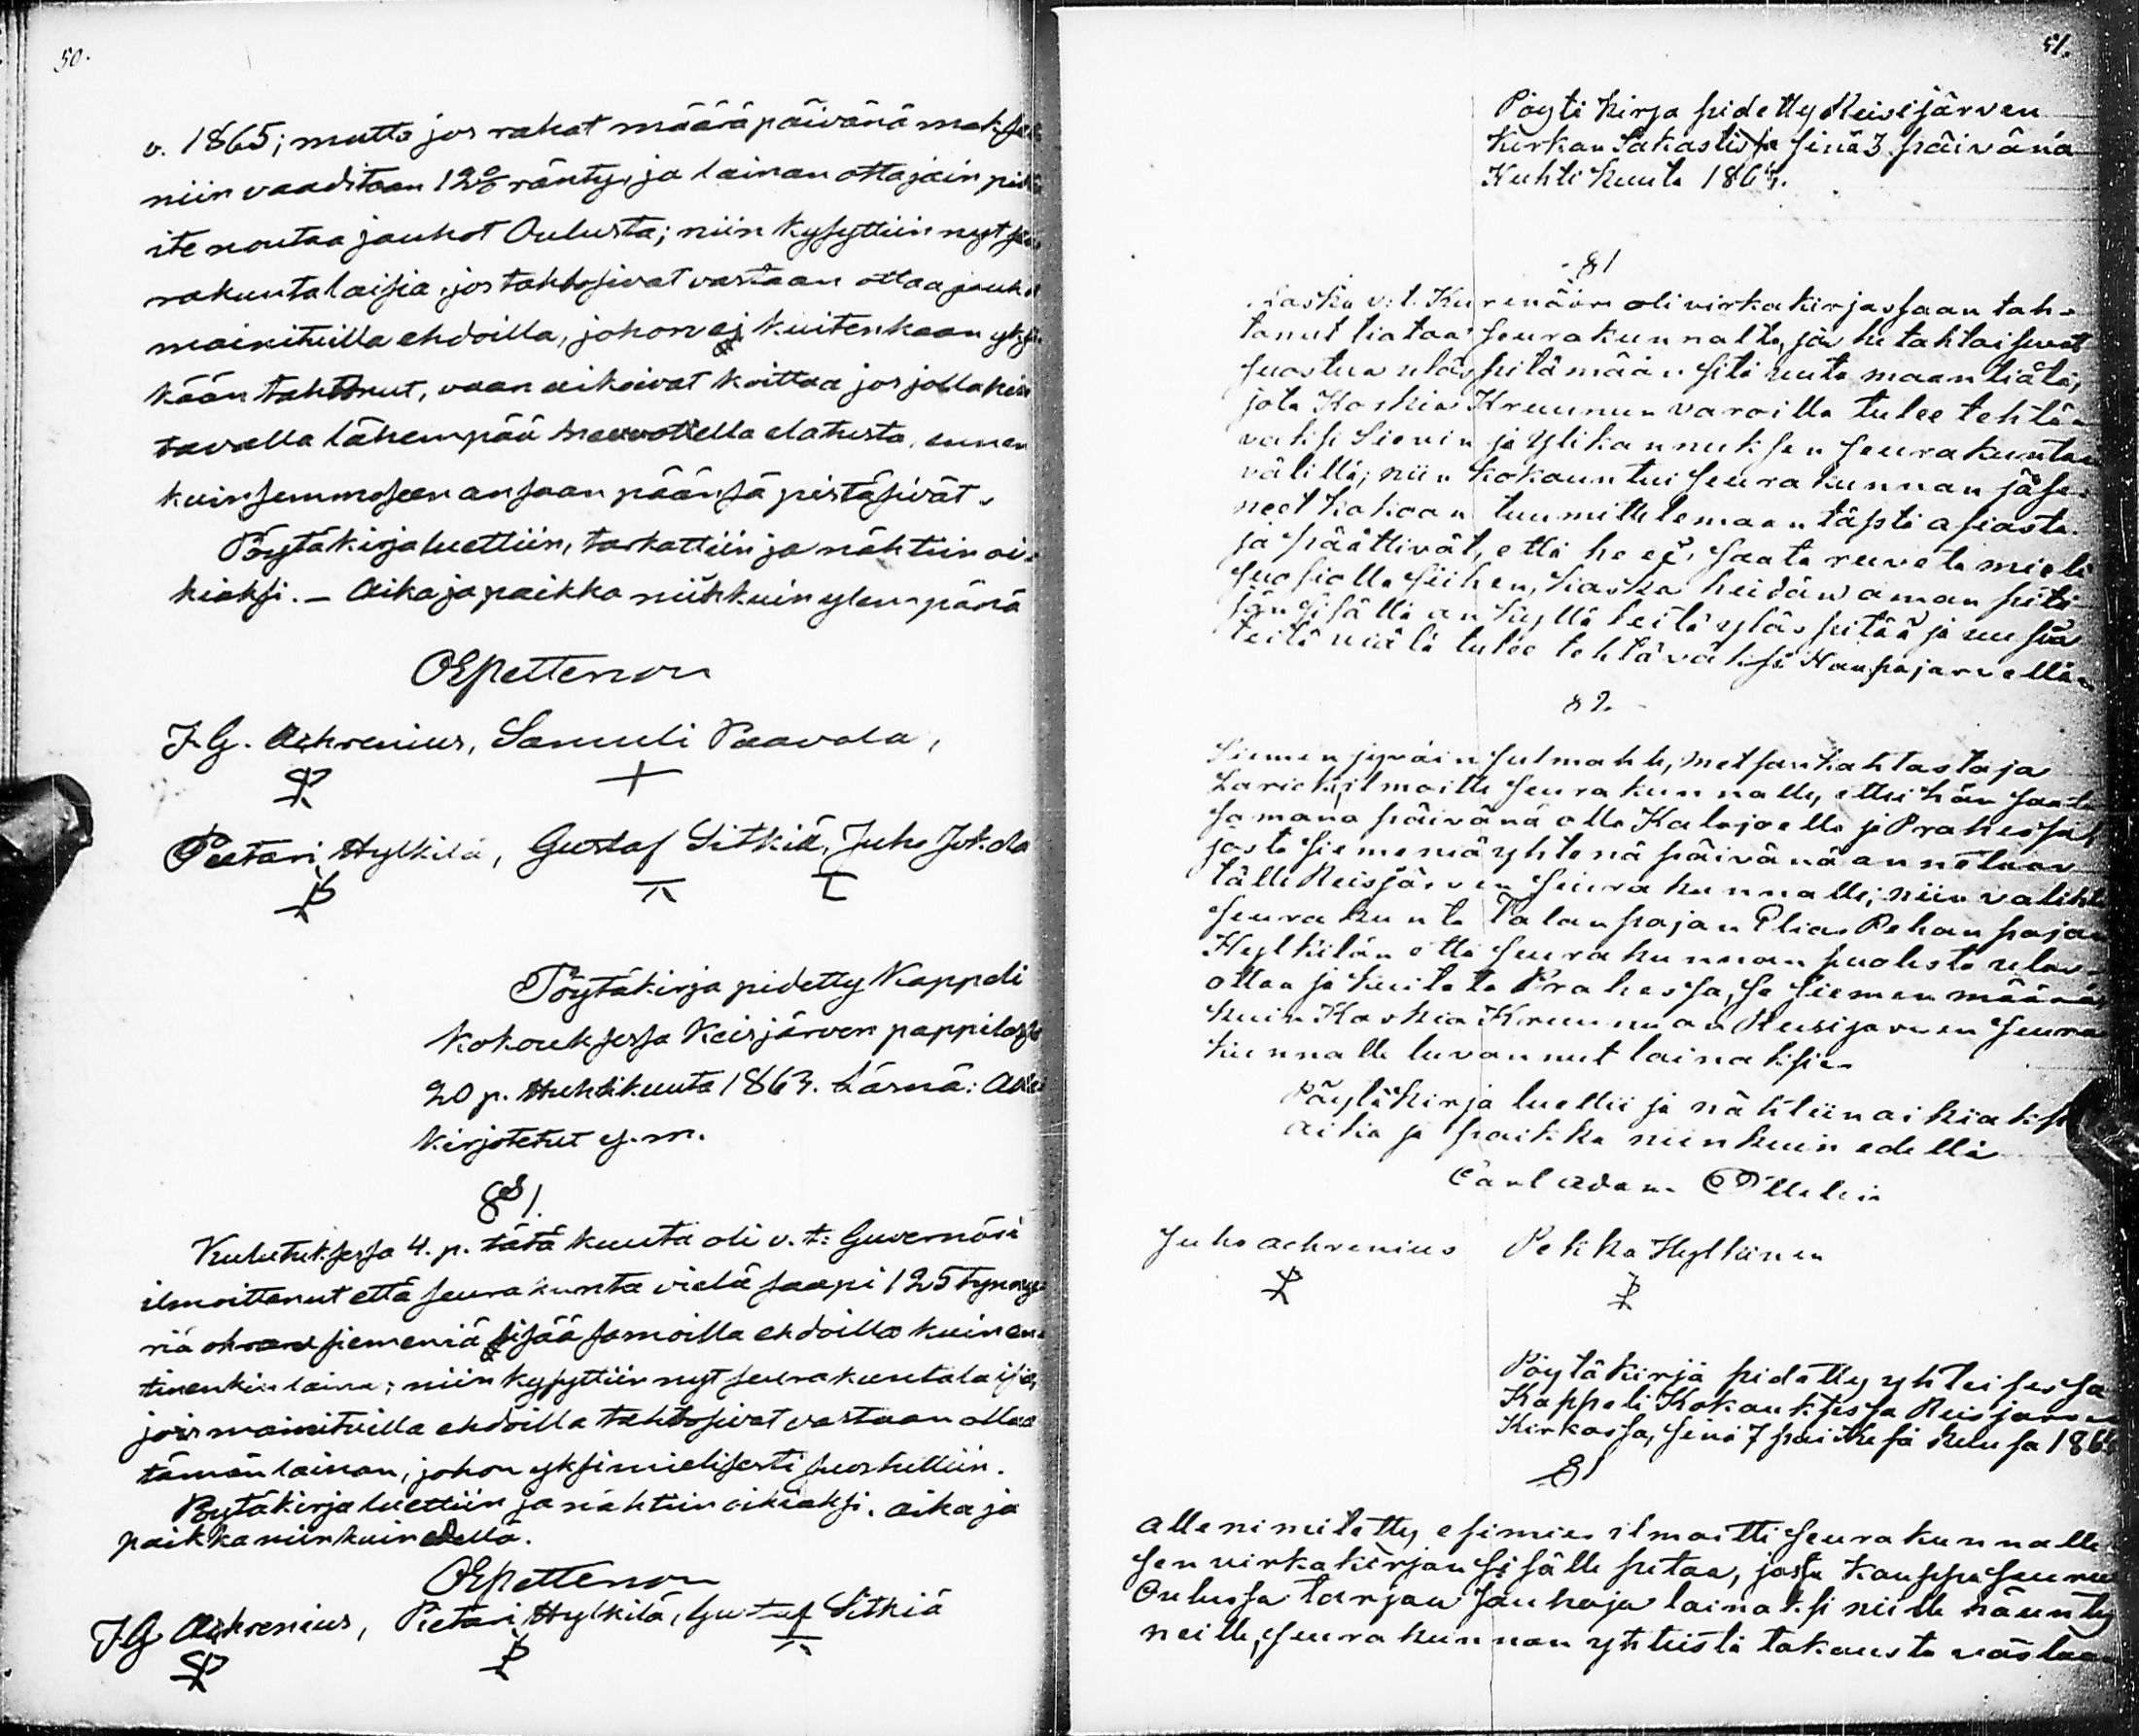 50.
v. 1865; mutta jos rahat määräpäivänä maksa
niin vaaditaan 12% ränty, ja lainan ottajain pit
ite noutaa jauhot Oulusta; niin kysyttiin nyt seu
rakuntalaisia, jos tahtosivat vastaan ottaa jauho
mainituilla ehdoilla, johon ej kuitenkaan yksi
kään tahtonut, vaan aikoivat koittaa jos jollakin
tavalla lähempää elatusta, ennen
kuin semmoseen ansaan päänsä pistäsivät.
Pöytäkirja luettiin, tarkattiin ja nähtiin oi-
kiaksi. – Aika ja paikka niinkuin ylempänä
OEPettersson
J.G. Achrenius, Samuli Paavola,
Pietari Hylkilä, Gustaf Sitkiä, Juho Jokela
Pöytäkirja pidetty Kappeli
kokouksessa Reisjärven pappilassa
20 p. Huhtikuuta 1863. Läsnä: Alle
kirjotetut y.m.
§ 1.
Kulutuksessa 4. p. tätä kuuta oli v.t. Guvernöri
ilmoittanut että seurakunta vielä saapi 125 tynny
riä ohran siemeniä lisää samoilla ehdoilla kuin en-
tinenkin laina; niin kysyttiin nyt seurakuntalaisia,
jos mainituilla ehdoilla tahtosivat vastaan ottaa
tämän lainan, johon yksimielisesti suostuttiin.
Pöytäkirja luettiin ja nähtiin oikiaksi. aika ja
paikka niinkuin edellä.
OEPettersson
J.G. Achrenius, Pietari Hylkilä, Gustaf Sitkiä
51.
Pöytä kirja pidetty Reisijärven
Kirkan Sakastissa sinä 3 päivänä
Huhti kuuta 1864.
§ 1
Kaska v.t. Kuvernööri oli virkakirjassaan tah-
tonut tiataa seurakunnalta, jos he tahtoisivat
suostua ylös pitämään sitä uuta maantiätä,
jota Korkia Kruunun varoilla tulee tehtä-
väksi Sievin ja Ylikannuksen seurakuntain
välillä; niin kokoontui seurakunnan jäse-
net kokoon tuumittelemaan tästä asiasta
ja päättivät, että he ei saata ruveta mieli
suosiolla siihen, kaska heidän aman pitä
jän sisällä on kyllä teitä ylös pitää ja uusia
teitä viälä tulee tehtäväksi Haapajärvellä.
§ 2.
Siemen jyväin metsankahtastaja
ilmoitti seurakunnalle, ettei hän saata
samana päivänä olla Kalajoella ja Prahessa,
josta siemeniä yhtenä päivänä annetaan
tälle Reisjärven seurakunnalle; niin valihti
seurakunta Talanpojan Elias Pekanpojan
Hylkilän että seurakunnan puolesta ulos-
ottaa ja kuitata Prahessa, se siemen määrä
kuin Korkia Kruunu on Reisijarven seura
kunnalle luvannut lainaksi.
Pöytäkirja luettii ja nähtiin oikiaksi
aika ja paikka niinkuin edellä
Carl Adam
Juho achrenius Pekka Hylkinen
Pöytäkirja pidetty yhteisessa
Kappeli Kokouksessa Reisjarven
Kirkossa, sinä 7 päi
§ 1
Allenimitetty esimies ilmoitti seurakunnalle
sen virkakirjan sisälle pitaa, jossa kauppa seura
Oulussa tarjou jauhoja lainaksi niille
neille, seurakunnan yhteistä takausta vastaan